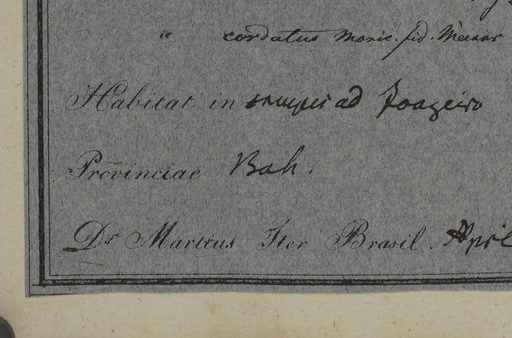 cordatus Moric. fid. Meisner
Habitat in campis ad Joazeiro
Provinciae Bah.
Dr Martius Iter Brasil. April